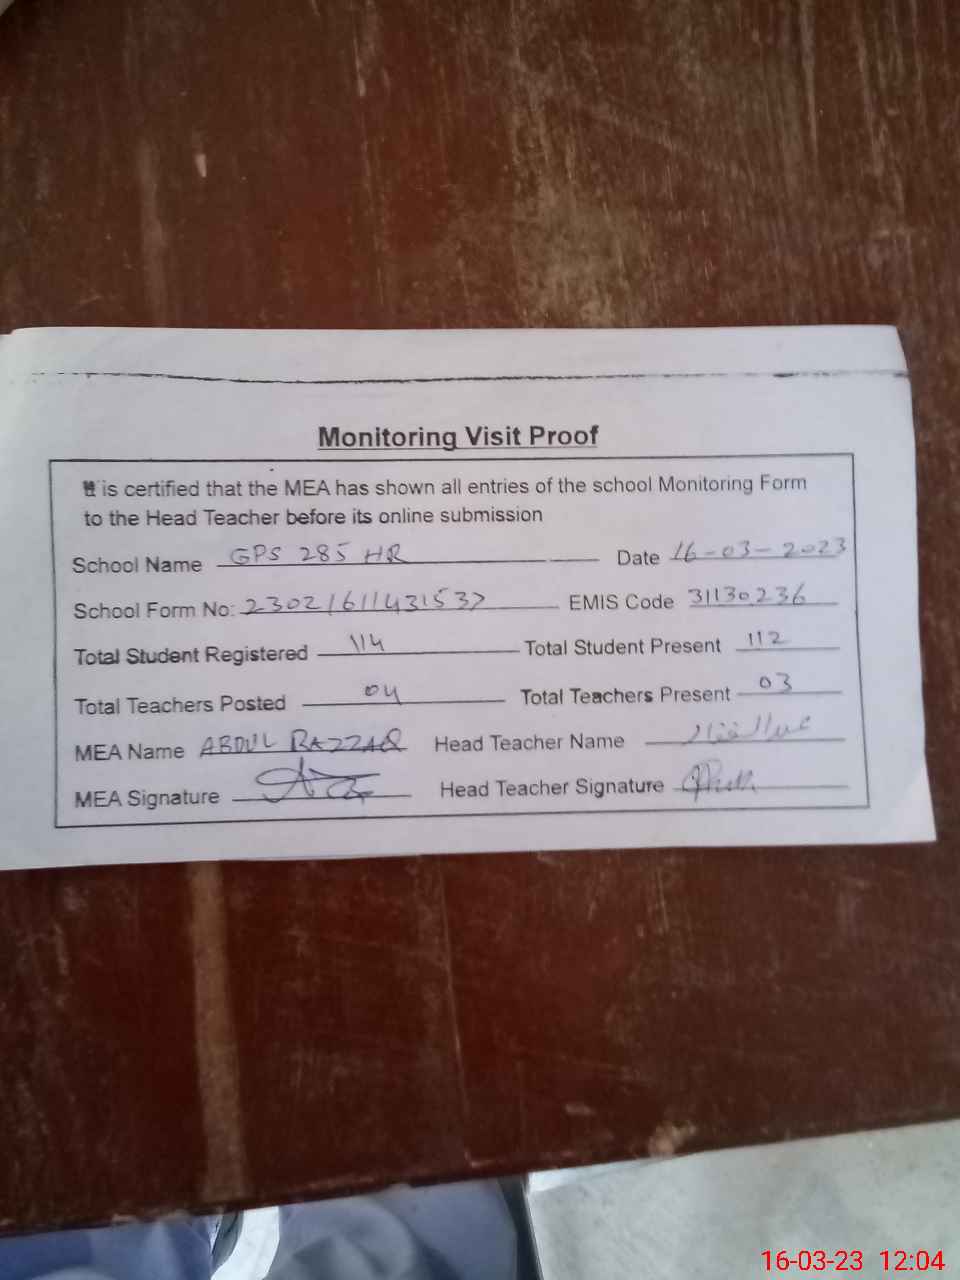 Monitoring Visit Proof
It is certified that the MEA has shown all entries of the school Monitoring Form
to the Head Teacher before its online submission
School Name GPS 285 HR Date 16-03-2023
School Form No: 23021611431537 EMIS Code 31130236
Total Student Registered 114 Total Student Present 112
Total Teachers Posted 04 Total Teachers Present 03
MEA Name ABDUL RAZZAQ Head Teacher Name عبدالغفار
MEA Signature Head Teacher Signature
16-03-23 12:04